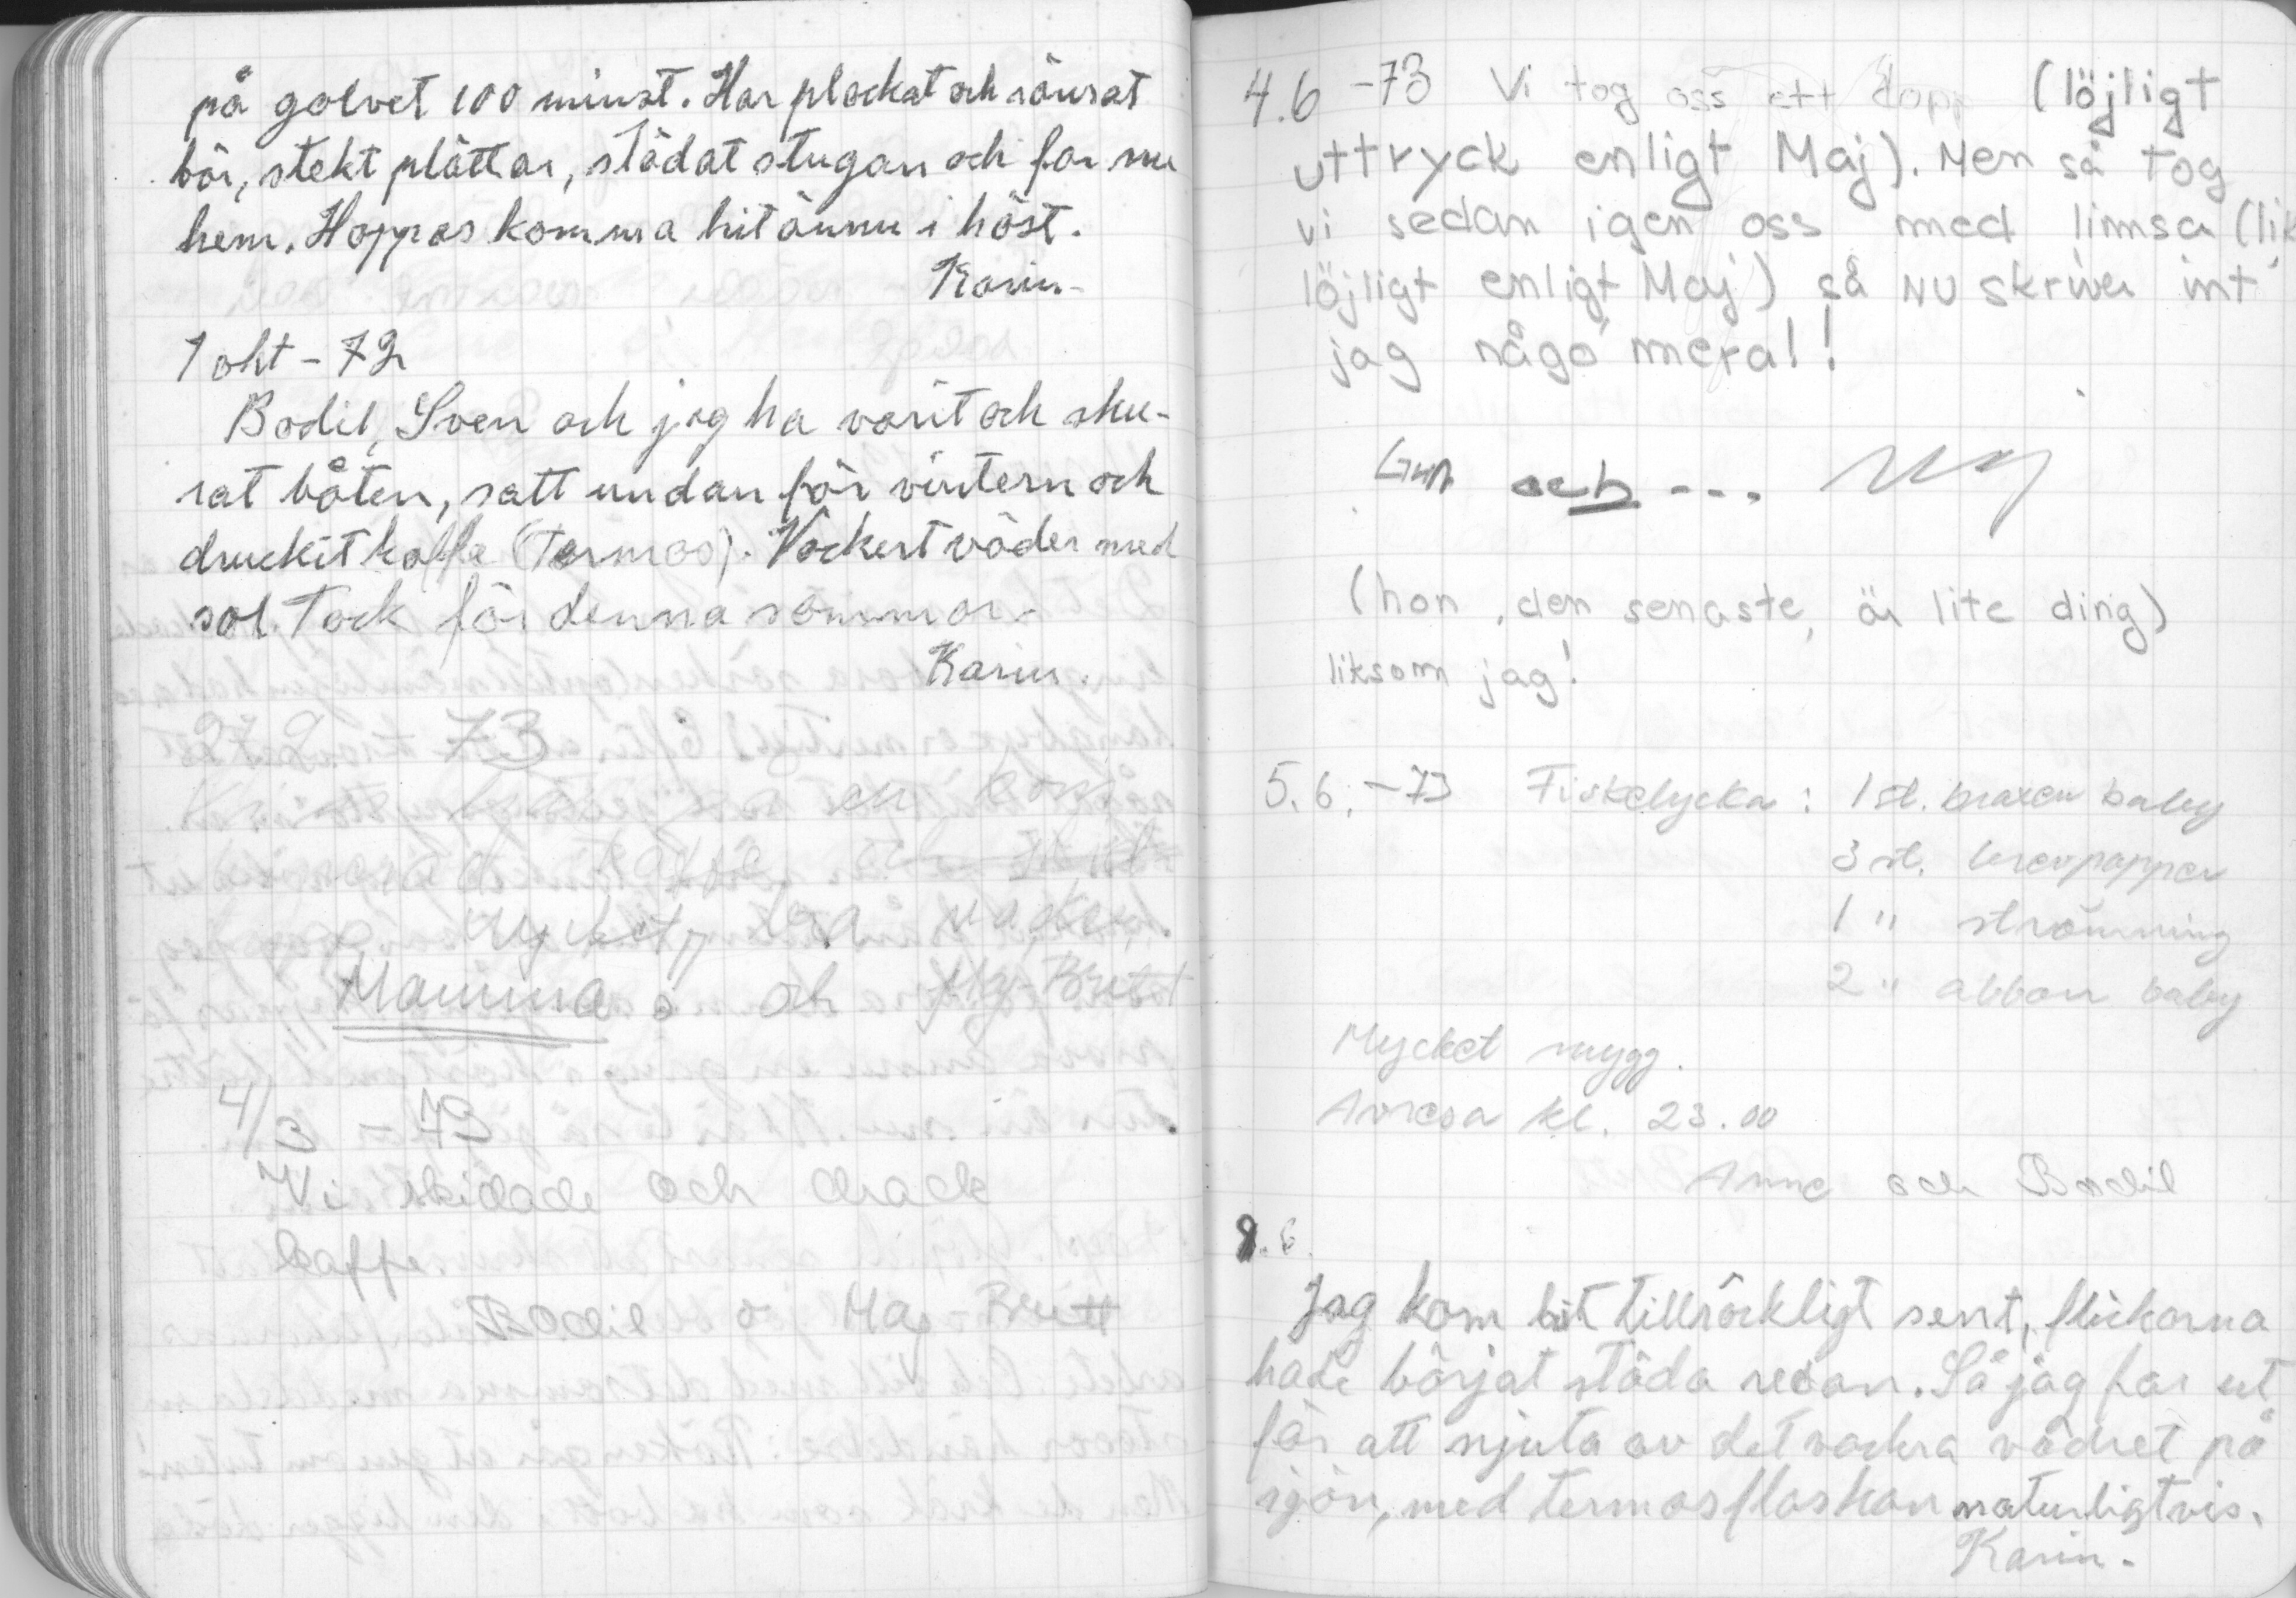 på golvet 100 minst. Har plockat och rensat
bär, stekt plättar, städat stugan och far nu
hem. Hoppas komma hit ännu i höst.
Karin.
1 okt - 72
Bodil, Sven och jag ha varit och sku-
rat båten, satt undan för vintern och
druckit kaffe (Termos). Vackert väder med
sol. Tack för denna sommar.
Karin.
73
kaffe och
Mycket bra väder.
Mamma o och Maj-Britt
4/3 - 73
Vi skidade och drack
kaffe.
Bodil o Maj-Britt
4.6 -73 Vi tog oss ett dopp (löjligt
uttryck enligt Maj). Men så tog
vi sedan igen oss med limsa (lik
löjligt enligt Maj) så nu skriver int'
jag någo' mera!!
Gun och ---.
(hon, den senaste, är lite ding)
liksom jag!
5.6.-73 Fiskelycka: 1 st. braxen baby
3 st. braxpappor
1 " strömming
2 " abbor baby
Mycket mygg.
Avresa kl. 23.00
Anne och Bodil
9.6.
Jag kom hit tillräckligt sent, flickorna
hade börjat städa redan. Så jag far ut
för att njuta av det vackra vädret på
sjön, med termosflaskan naturligtvis.
Karin.